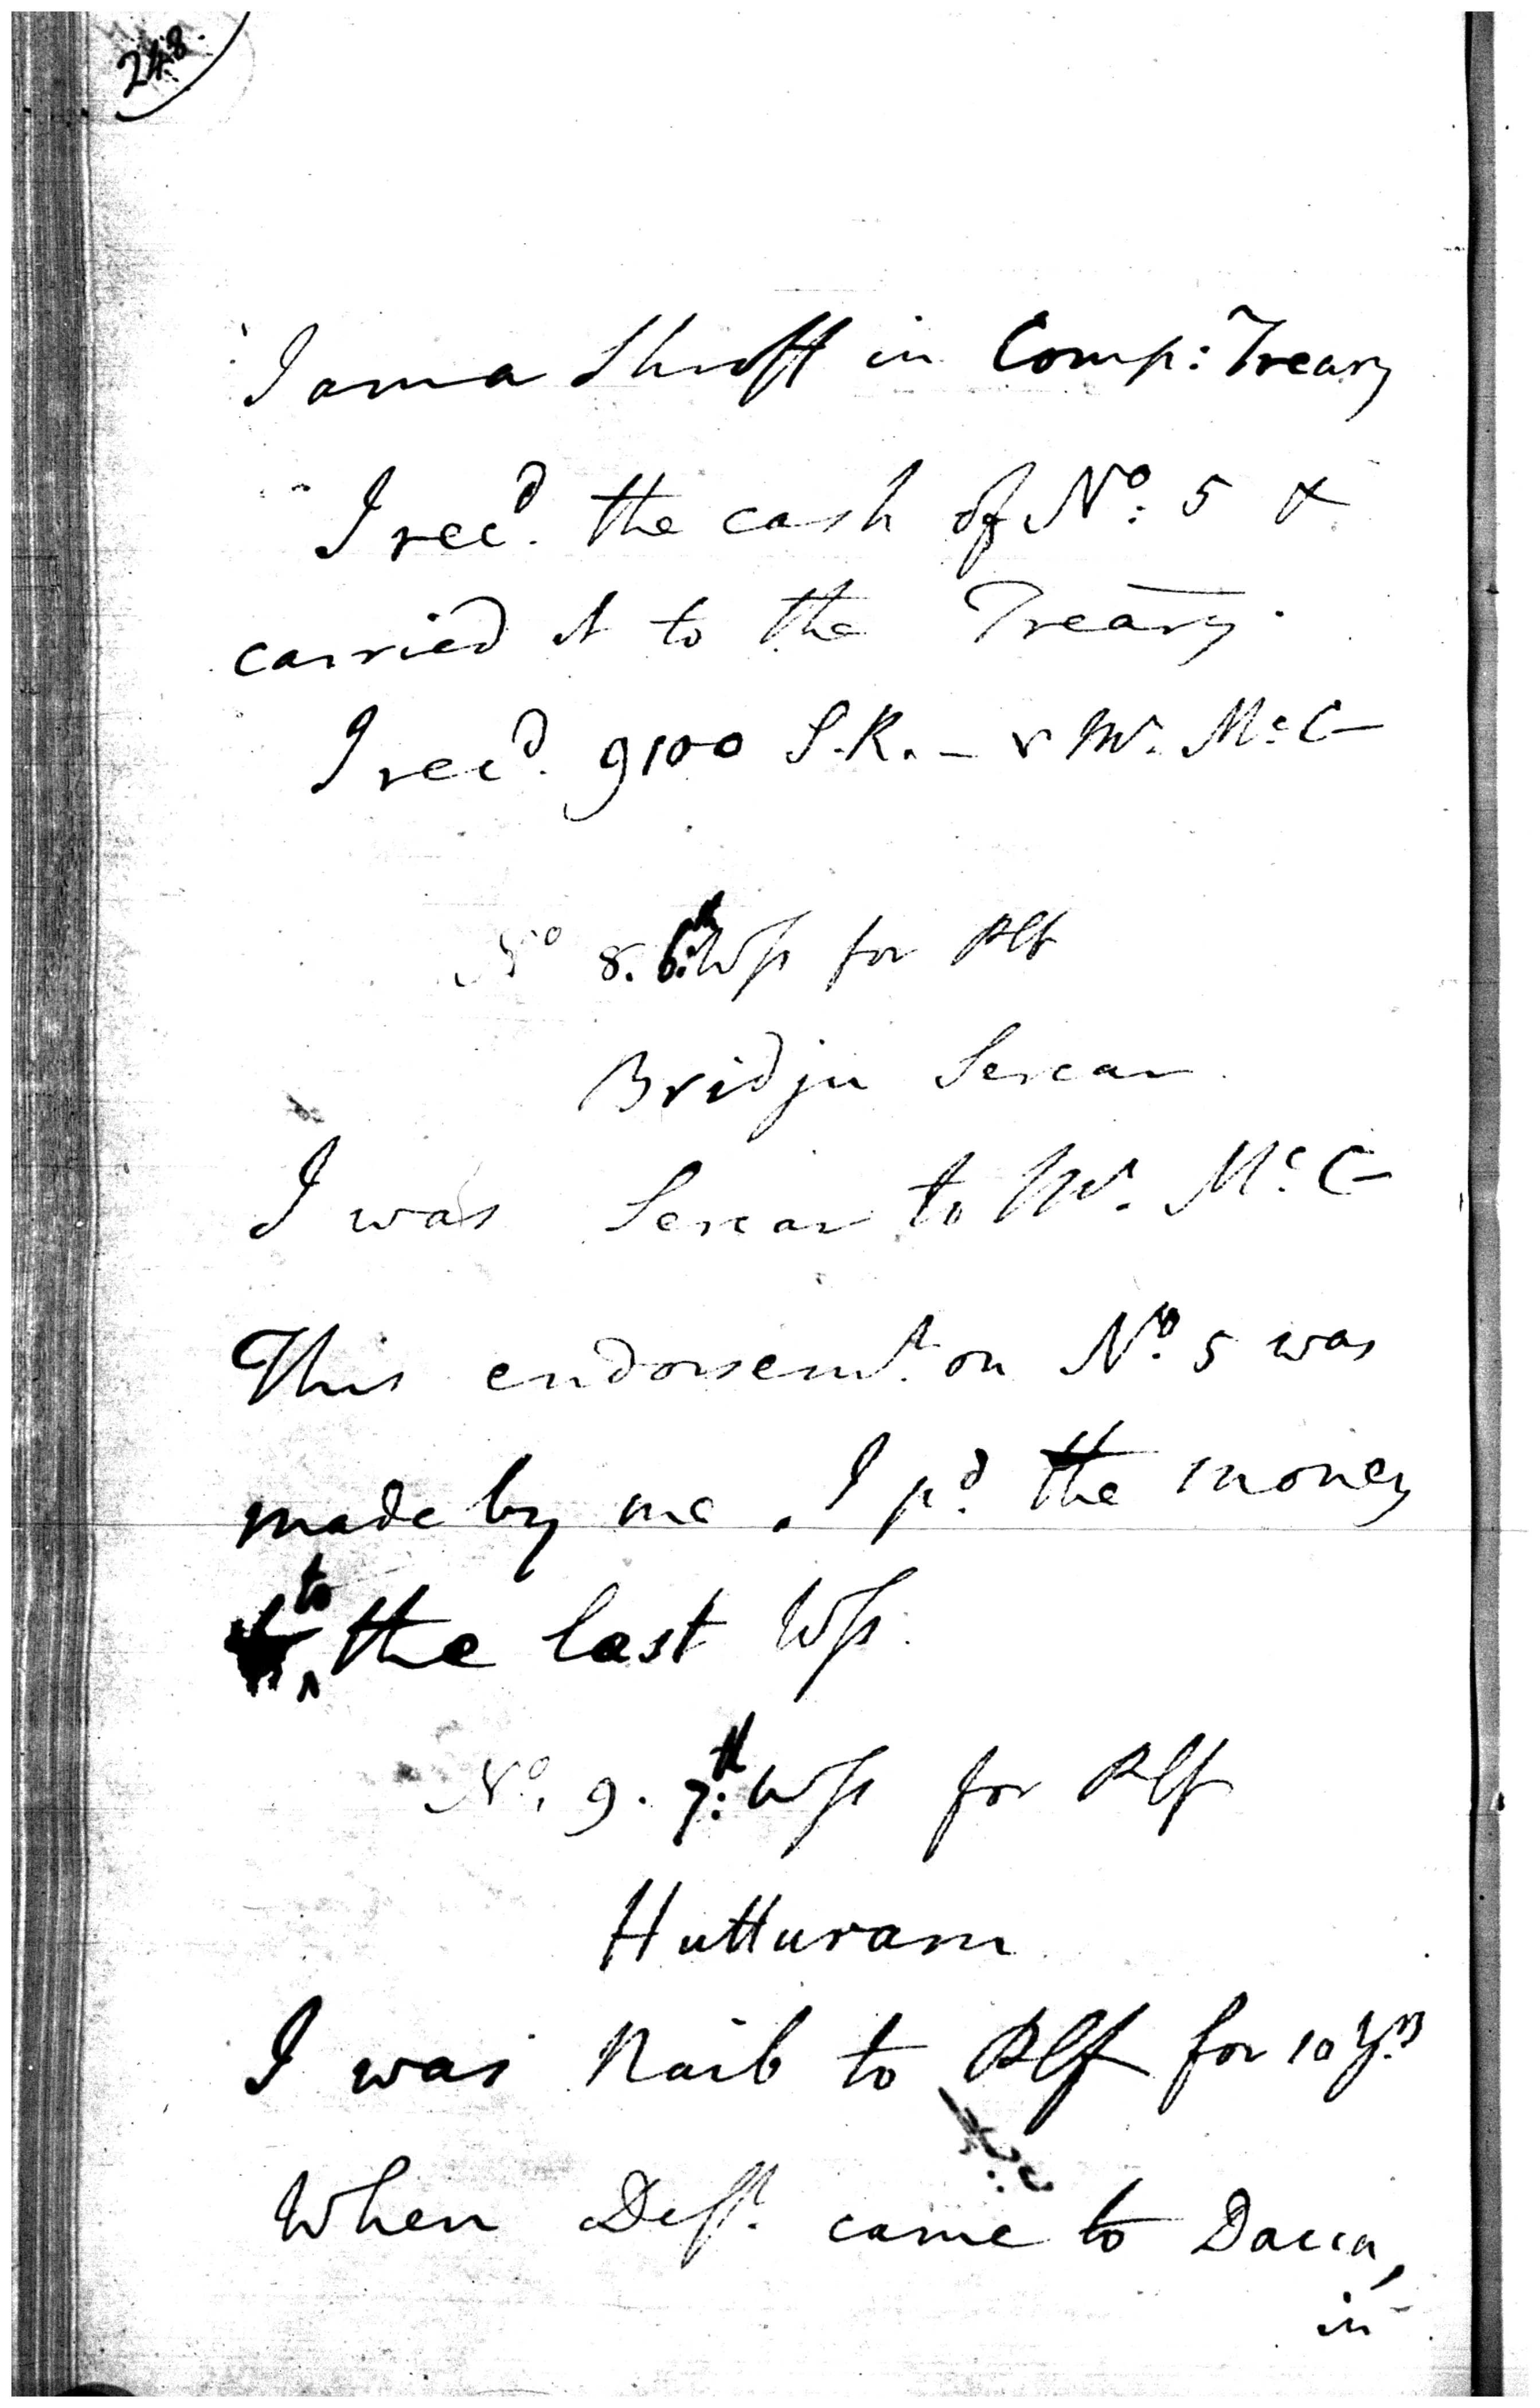 248.
I am a Shroff in Comp: Treary
I rec.d the cash of No. 5 &
carried it to the Treary.
I rec.d 9100 S.R. - Mr. Mc. C-
No 8. 6.th Wss for Plf
Bridju Sercar
I was Sercar to Mr. Mc. C-
This endorsem.t on No. 5 was
made by me. I p.d the money
to the last Wss.
No. 9. 7.th Wss for Plf
Hutturam
I was Naib to Plf for 10 y.rs
When Deft. came to Dacca,
in